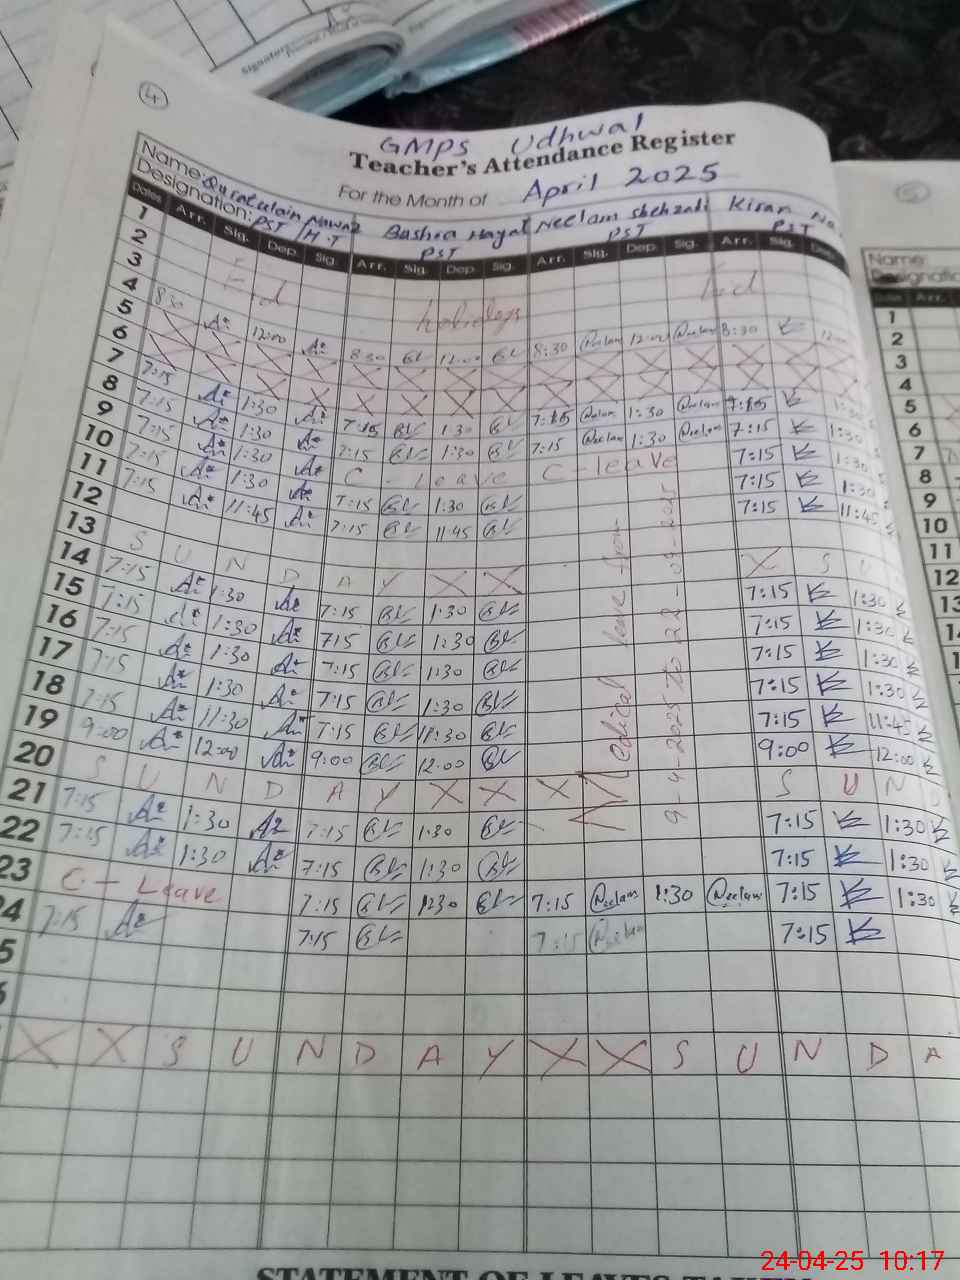 Signature
4
GMPS Udhwal
Teacher's Attendance Register
For the Month of April 2025
Name: Quratulain Nawaz Bushra Hayat Neelam Shehzadi Kiran
Designation: PST / H.T PST PST PST
Dates Arr. Sig. Dep. Sig. Arr. Sig. Dep. Sig. Arr. Sig. Dep. Sig. Arr. Sig. Dep.
1
2
3 Eid holidays Eid
4 8:30 12:00 8:30 12:00 8:30 Neelam 12:00 Neelam 8:30 12:00
5 X X X X X X X X X X X X X X
6 X X X X X X X X X X X X X X
7 7:15 1:30 7:15 1:30 7:15 Neelam 1:30 Neelam 7:15 1:30
8 7:15 1:30 7:15 1:30 7:15 Neelam 1:30 Neelam 7:15 1:30
9 7:15 1:30 C - Leave C - leave 7:15 1:30
10 7:15 1:30 7:15 1:30 7:15 1:30
11 7:15 11:45 7:15 11:45 7:15 11:45
12
13 S U N D A Y X X X S U
14 7:15 1:30 7:15 1:30 7:15 1:30
15 7:15 1:30 715 1:30 7:15 1:30
16 7:15 1:30 7:15 1:30 7:15 1:30
17 7:15 1:30 7:15 1:30 7:15 1:30
18 7:15 11:30 7:15 11:30 7:15 11:45
19 9:00 12:00 9:00 12:00 9:00 12:00
20 S U N D A Y X X X S U N D
21 7:15 1:30 7:15 1:30 7:15 1:30
22 7:15 1:30 7:15 1:30 7:15 1:30
23 C - Leave 7:15 1:30 7:15 Neelam 1:30 Neelam 7:15 1:30
24 7:15 7:15 7:15 Neelam 7:15
5
6
X X S U N D A Y X X S U N D A
Medical leave from
9-4-2025 to 22-04-2025
5
Name:
Designatio
Arr.
1
2
3
4
5
6
7
8
9
10
11
12
13
STATEMENT OF LEAVES TAKEN
24-04-25 10:17